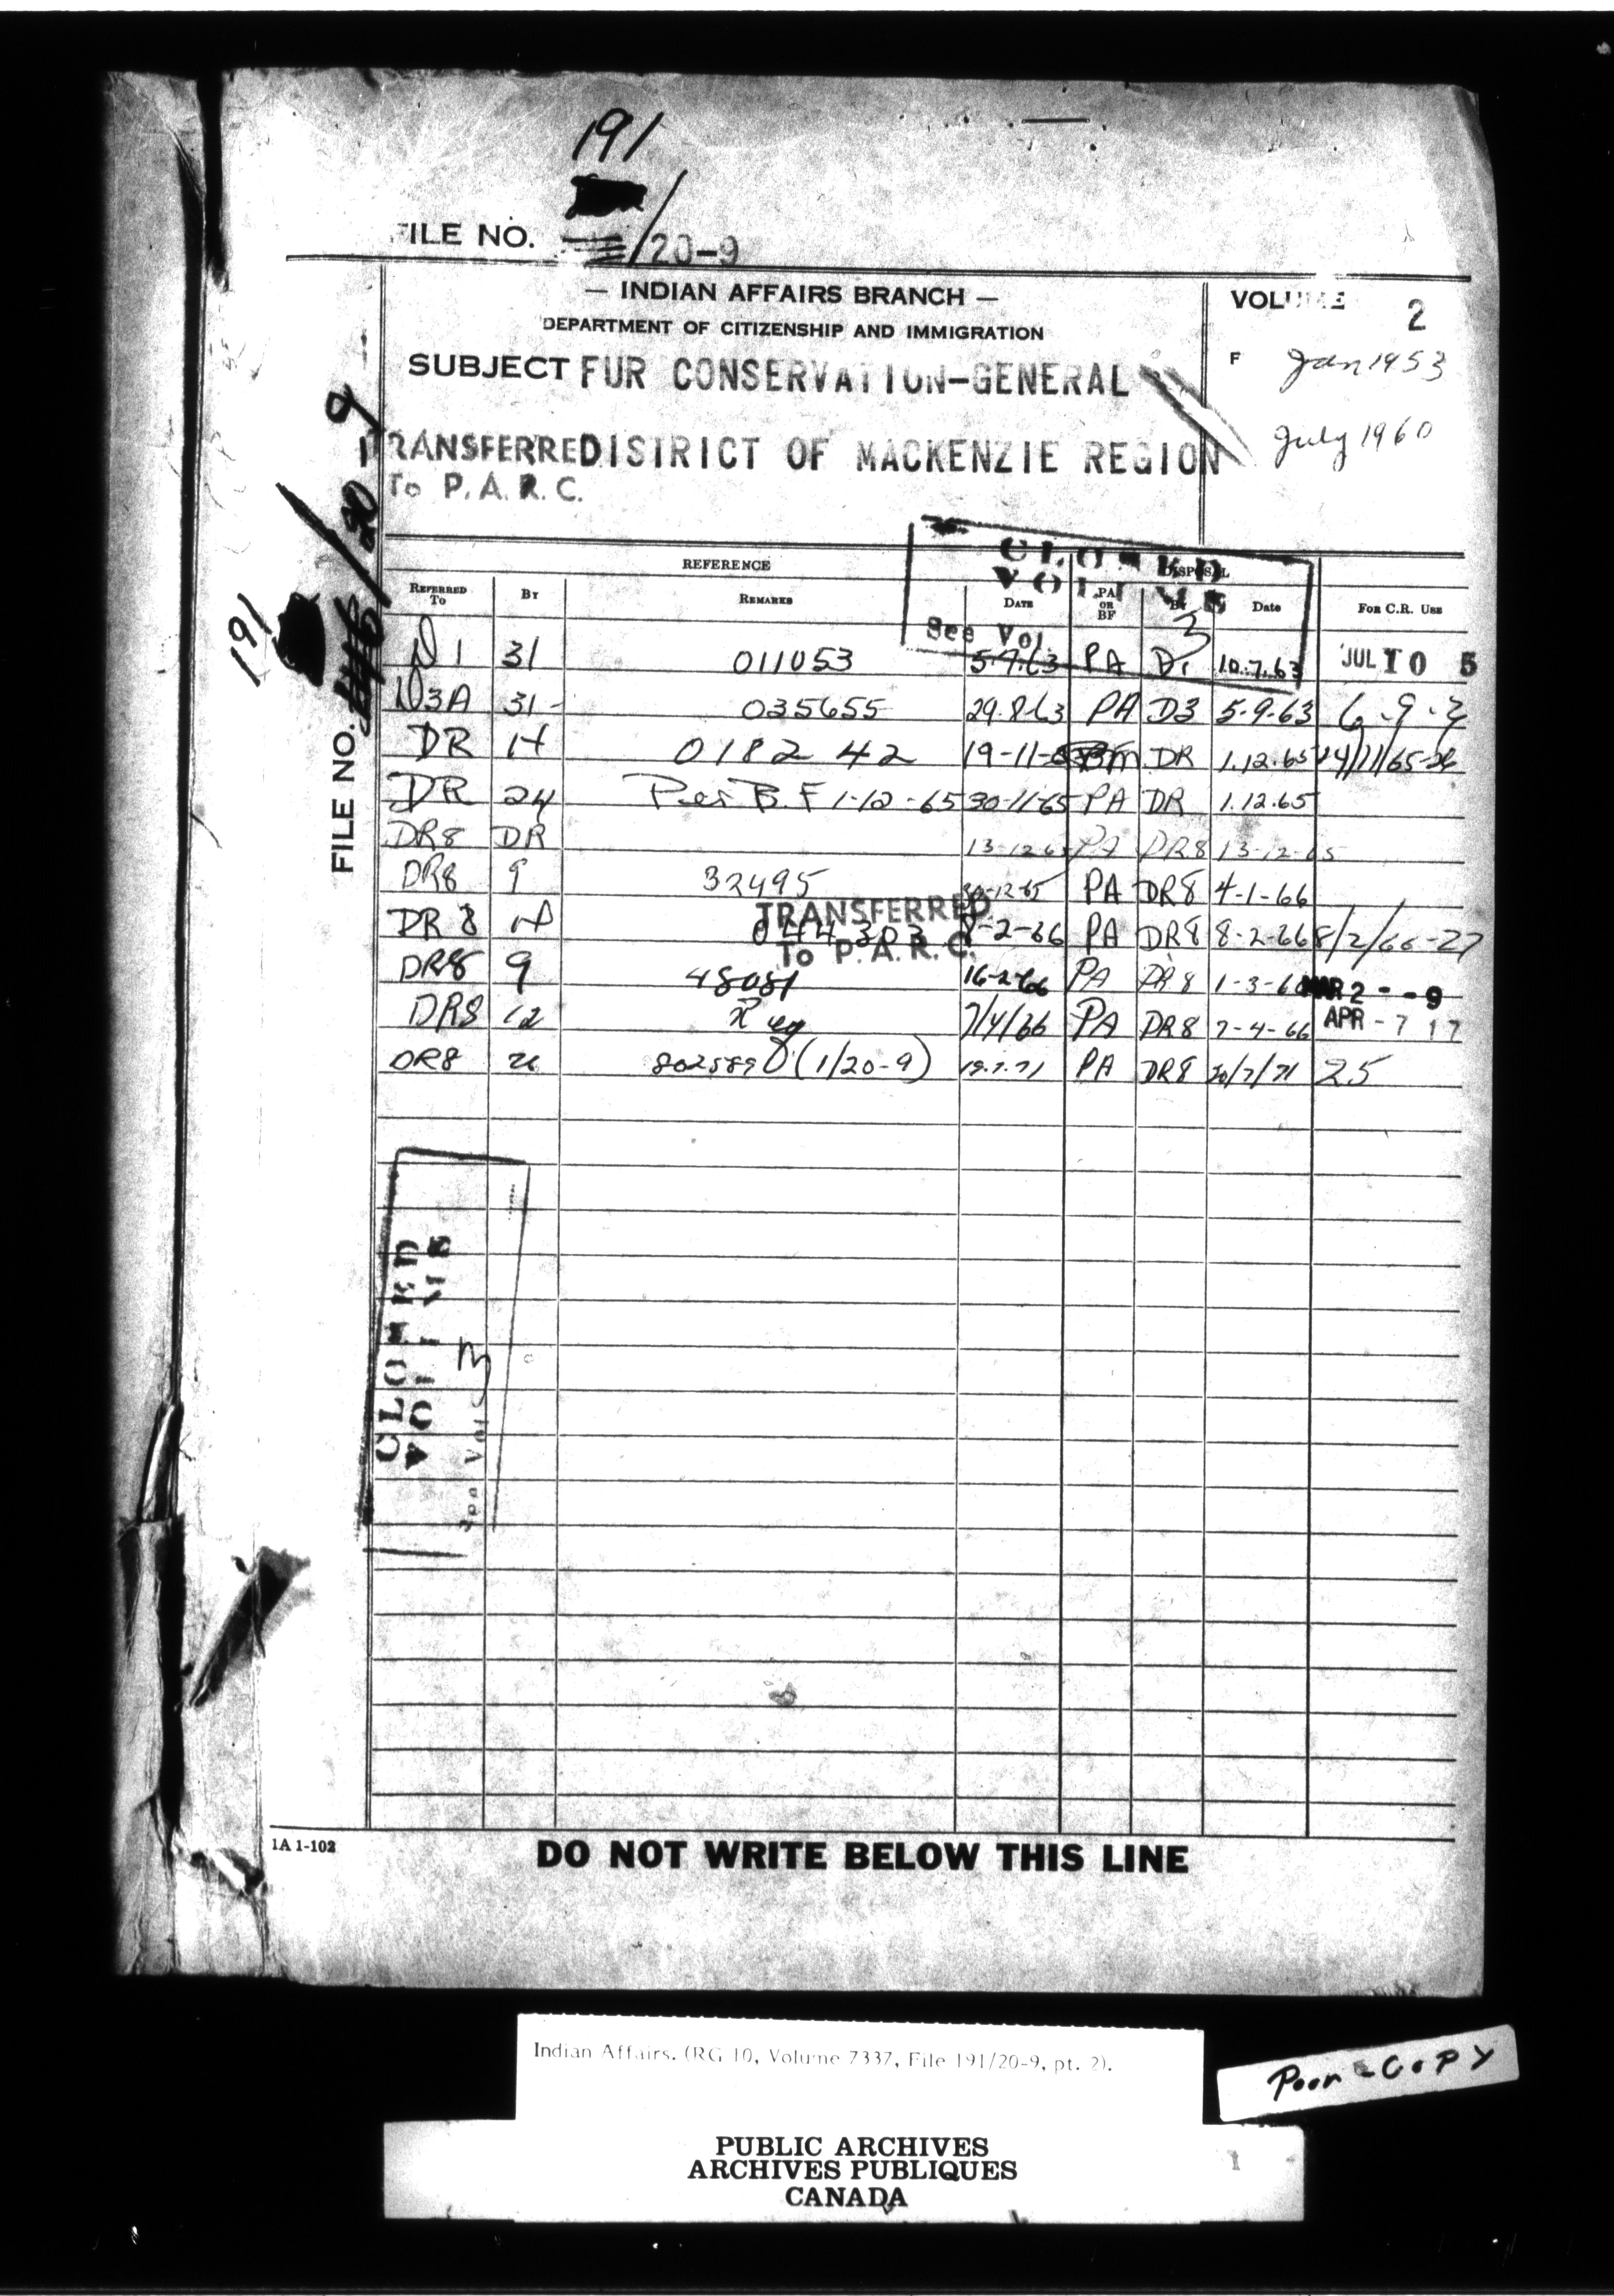 191
FILE NO. /20-9
— INDIAN AFFAIRS BRANCH —
DEPARTMENT OF CITIZENSHIP AND IMMIGRATION
SUBJECT FUR CONSERVATION-GENERAL
TRANSFERRED DISTRICT OF MACKENZIE REGION
To P.A.R.C.
VOLUME 2
F Jan 1953
July 1960
FILE NO. 191/20-9
CLOSED
VOLUME
See Vol. 3
REFERENCE DISPOSAL
REFERRED TO BY REMARKS DATE PA OR BF BY Date FOR C.R. USE
D1 31 011053 5.7.63 PA D1 10.7.63 JUL 10 5
D3A 31 035655 29.8.63 PA D3 5.9.63
DR 14 018242 19-11- DR 1.12.65
DR 24 Per B.F 1-12-65 30-11-65 PA DR 1.12.65
DR8 DR 13-12-65 PA DR8 13-12-65
DR8 9 32495 PA DR8 4-1-66
DR8 14 044303 8-2-66 PA DR8 8-2-66 8/2/66-27
TRANSFERRED
To P.A.R.C.
DR8 9 48081 16-2-66 PA DR8 1-3-66 MAR 2 - - 9
DR8 12 7/4/66 PA DR8 7-4-66 APR - 7 17
DR8 802589 (1/20-9) 19.7.71 PA DR8 20/7/71 25
CLOSED
VOLUME
See Vol 3
1A 1-102
DO NOT WRITE BELOW THIS LINE
Indian Affairs. (RG 10, Volume 7337, File 191/20-9, pt. 2).
Poor Copy
PUBLIC ARCHIVES
ARCHIVES PUBLIQUES
CANADA